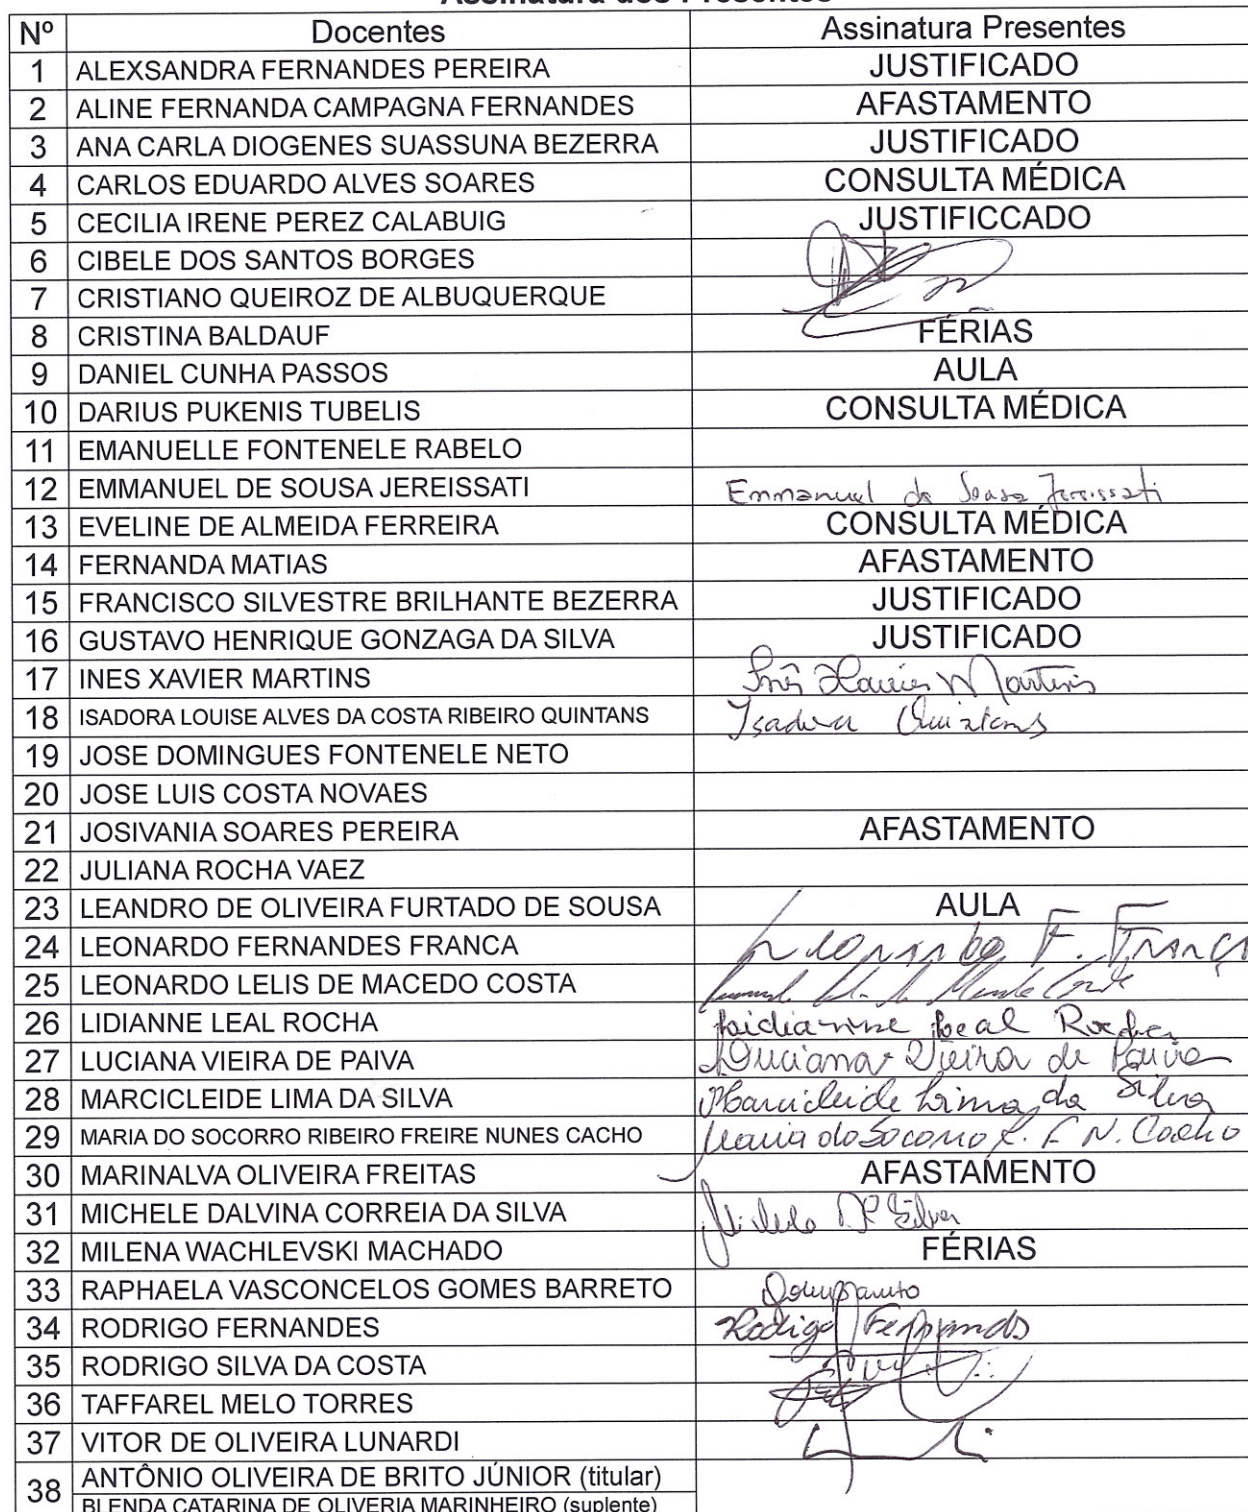 Assinatura dos Presentes
Nº Docentes Assinatura Presentes
1 ALEXSANDRA FERNANDES PEREIRA JUSTIFICADO
2 ALINE FERNANDA CAMPAGNA FERNANDES AFASTAMENTO
3 ANA CARLA DIOGENES SUASSUNA BEZERRA JUSTIFICADO
4 CARLOS EDUARDO ALVES SOARES CONSULTA MÉDICA
5 CECILIA IRENE PEREZ CALABUIG JUSTIFICCADO
6 CIBELE DOS SANTOS BORGES
7 CRISTIANO QUEIROZ DE ALBUQUERQUE
8 CRISTINA BALDAUF FÉRIAS
9 DANIEL CUNHA PASSOS AULA
10 DARIUS PUKENIS TUBELIS CONSULTA MÉDICA
11 EMANUELLE FONTENELE RABELO
12 EMMANUEL DE SOUSA JEREISSATI Emmanuel de Sousa Jereissati
13 EVELINE DE ALMEIDA FERREIRA CONSULTA MÉDICA
14 FERNANDA MATIAS AFASTAMENTO
15 FRANCISCO SILVESTRE BRILHANTE BEZERRA JUSTIFICADO
16 GUSTAVO HENRIQUE GONZAGA DA SILVA JUSTIFICADO
17 INES XAVIER MARTINS Inês Xavier Martins
18 ISADORA LOUISE ALVES DA COSTA RIBEIRO QUINTANS Isadora Quintans
19 JOSE DOMINGUES FONTENELE NETO
20 JOSE LUIS COSTA NOVAES
21 JOSIVANIA SOARES PEREIRA AFASTAMENTO
22 JULIANA ROCHA VAEZ
23 LEANDRO DE OLIVEIRA FURTADO DE SOUSA AULA
24 LEONARDO FERNANDES FRANCA Leonardo F. França
25 LEONARDO LELIS DE MACEDO COSTA
26 LIDIANNE LEAL ROCHA Lidianne Leal Rocha
27 LUCIANA VIEIRA DE PAIVA Luciana Vieira de Paiva
28 MARCICLEIDE LIMA DA SILVA Marcicleide Lima da Silva
29 MARIA DO SOCORRO RIBEIRO FREIRE NUNES CACHO Maria do Socorro R. F. N. Cacho
30 MARINALVA OLIVEIRA FREITAS AFASTAMENTO
31 MICHELE DALVINA CORREIA DA SILVA Michele D C Silva
32 MILENA WACHLEVSKI MACHADO FÉRIAS
33 RAPHAELA VASCONCELOS GOMES BARRETO
34 RODRIGO FERNANDES Rodrigo Fernandes
35 RODRIGO SILVA DA COSTA
36 TAFFAREL MELO TORRES
37 VITOR DE OLIVEIRA LUNARDI
38 ANTÔNIO OLIVEIRA DE BRITO JÚNIOR (titular)
BLENDA CATARINA DE OLIVERIA MARINHEIRO (suplente)